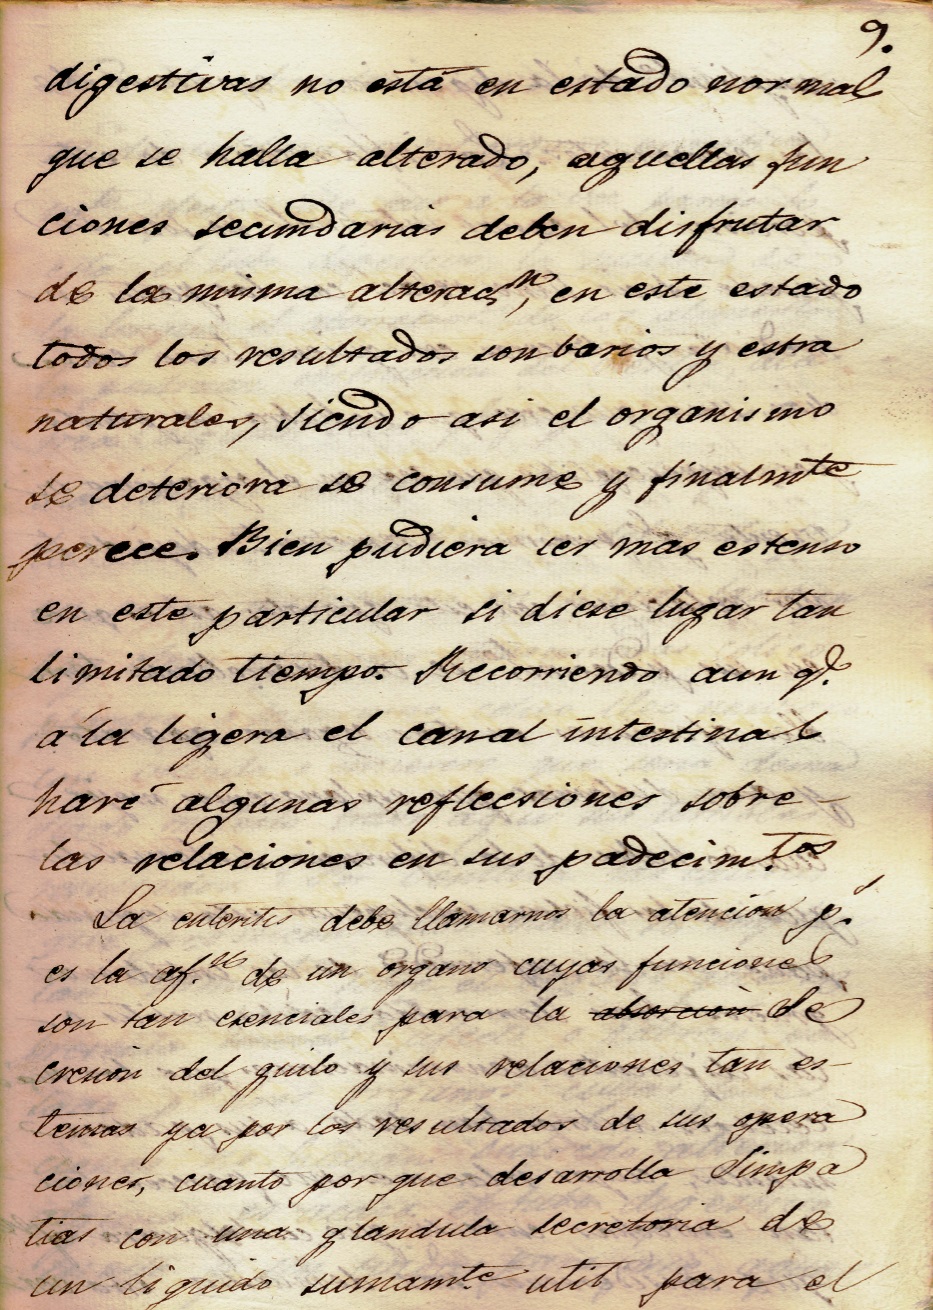 9.
digestivas no está en estado normal
que se halla alterado, aquellas fun
ciones secundarias deben disfrutar
de la misma alterac.n, en este estado
todos los resultados son barios y estra
naturales, siendo asi el organismo
se deteriora se consume y finalmte
perece. Bien pudiera ser mas estenso
en este particular si diese lugar tan
limitado tiempo. Recorriendo aun q.e
á la ligera el canal intestinal
haré algunas reflecsiones sobre
las relaciones en sus padecim.tos
La enteritis debe llamarnos la atencion p.s
es la af.n de un organo cuyas funciones
son tan esenciales para la absorcion Se
crecion del quilo y sus relaciones tan es-
tensas ya por los resultados de sus opera
ciones, cuanto por que desarrolla Simpa
tias con una glandula secretoria de
un liquido sumamte util para el